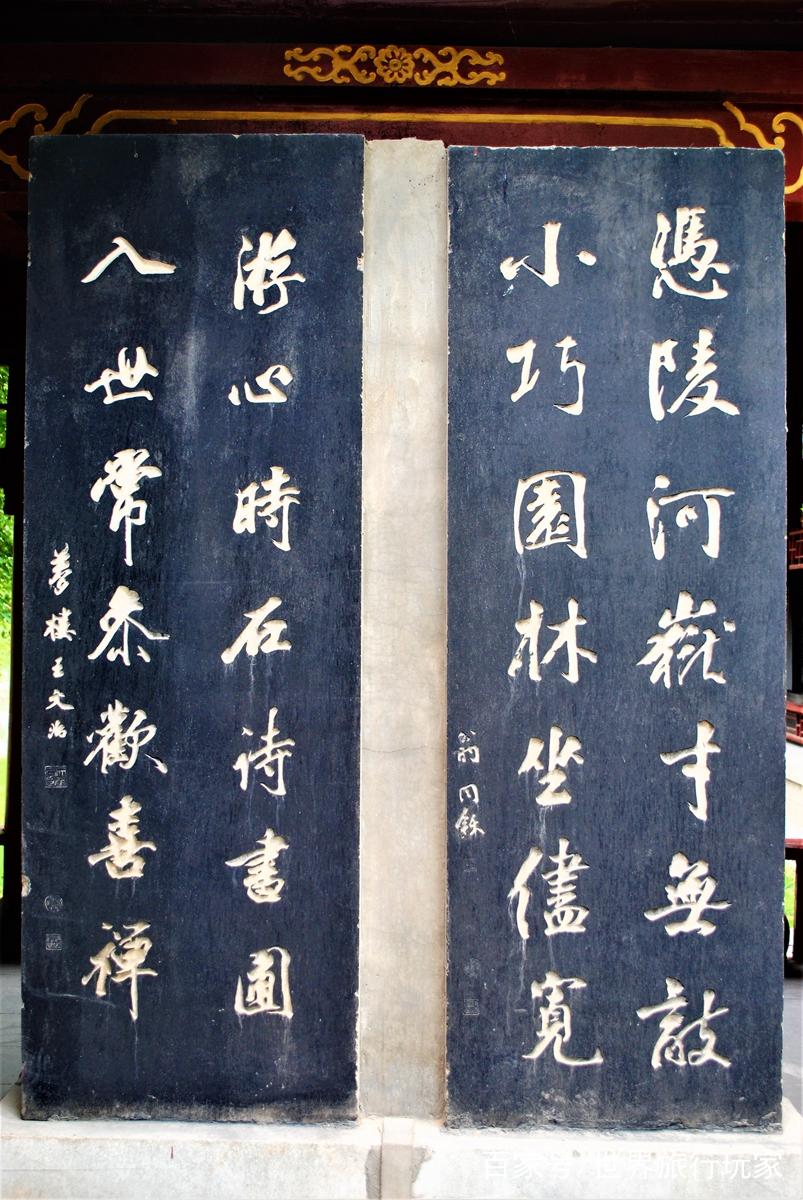 憑陵河嶽才無敵
小巧園林坐儘寬
翁同龢
游心時在詩書圃
入世常參歡喜禪
夢樓王文治
百家号/世界旅行玩家